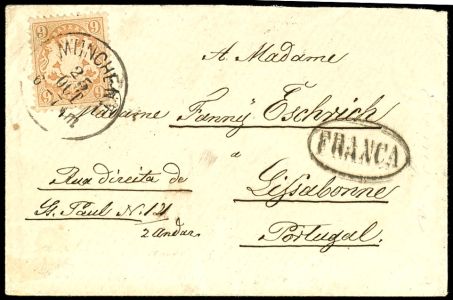 9 9
MÜNCHEN
25
OCT
A Madame
Madame Fanny Eschrich
FRANCA
à
Lissabonne
Portugal.
Rua direita de
St. Paul N. 12
2 Andar.